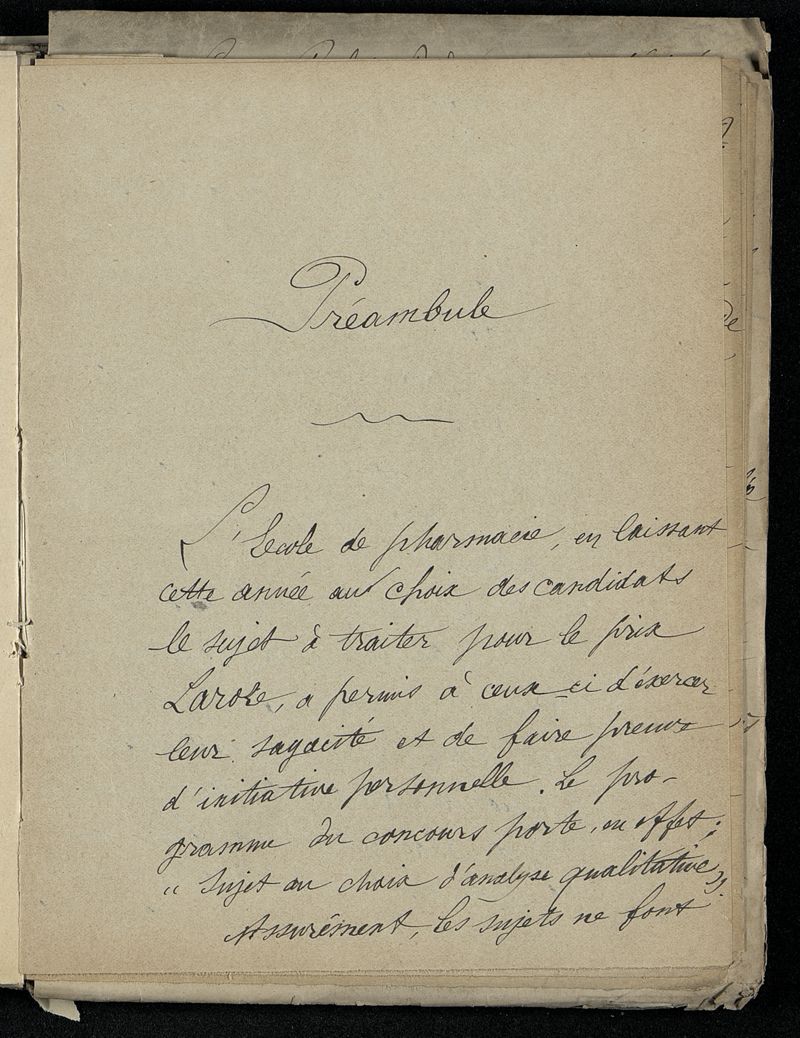 Préambule
L'Ecole de pharmacie, en laissant
cette année au choix des candidats
le sujet à traiter pour le prix
Laroze, a permis à ceux-ci d'éxercer
leur sagacité et de faire preuve
d'initiative personnelle. Le pro-
gramme du concours porte, en effet :
" Sujet au choix d'analyse qualitative ".
Assurément, les sujets ne font